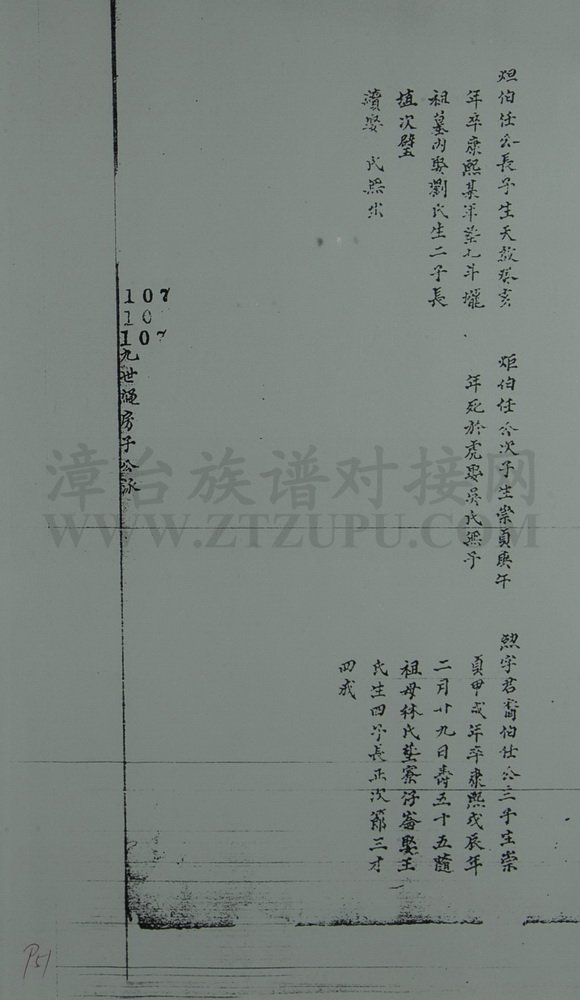 炟伯任公長子生天啟癸亥
年卒康熙某年塟七斗壠
祖墓內娶劉氏生二子長
埴次壁
續娶 氏無出
炬伯任公次子生崇貞庚午
年死於虎娶吳氏無子
熙字君喬伯任公三子生崇
貞甲戌年卒康熙戊辰年
二月廿九日壽五十五隨
祖母林氏塟寮仔崙娶王
氏生四子長正次節三才
四戎
107
10
107
九世繩房子公派
漳台族谱对接网
WWW.ZTZUPU.COM
P51